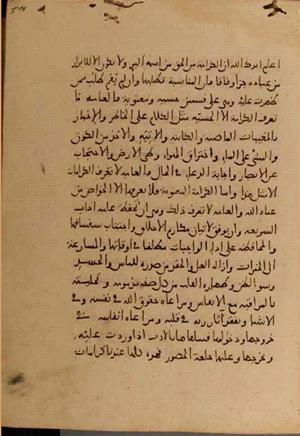 اعلم ايدك الله ان الكرامة من الحق من اسمه البر ولا تكون الا للابرار
من عباده جزا وفاقا فان المناسبة تطلبها وان لم يقم طلب ممن
ظهرت عليه وهي على قسمين حسية ومعنوية فالعامة ما
تعرف الكرامة الا الحسية مثل الكلام على الخاطر والاخبار
بالمغيبات الماضية والكاينة والاتية والاخذ من الكون
والمشي على الماء واختراق الهواء وطي الارض والاحتجاب
عن الابصار واجابة الدعا في الحال فالعامة لا تعرف الكرامات
الا مثل هذا واما الكرامة المعنوية فلا يعرفها الا الخواص من
عباد الله والعامة لا تعرف ذلك وهي ان تحفظ عليه اداب
الشريعة وان يوفق لاتيان مكارم الاخلاق واجتناب سفسافها
والمحافظة على اداء الواجبات مطلقا في اوقاتها والمسارعة
الى الخيرات وازالة الغل والحقد من صدره للناس والحسد
وسوء الظن وطهارة القلب من كل صفة مذمومة وتحليته
بالمراقبة مع الانفاس ومراعاة حقوق الله في نفسه وفي
الاشيا وتفقد آثار ربه في قلبه ومراعاة انفاسه في
خروجها ودخولها فيتلقاها بالادب اذا وردت عليه
ويخرجها وعليها خلعة الحضور فهذه كلها عندنا كرامات